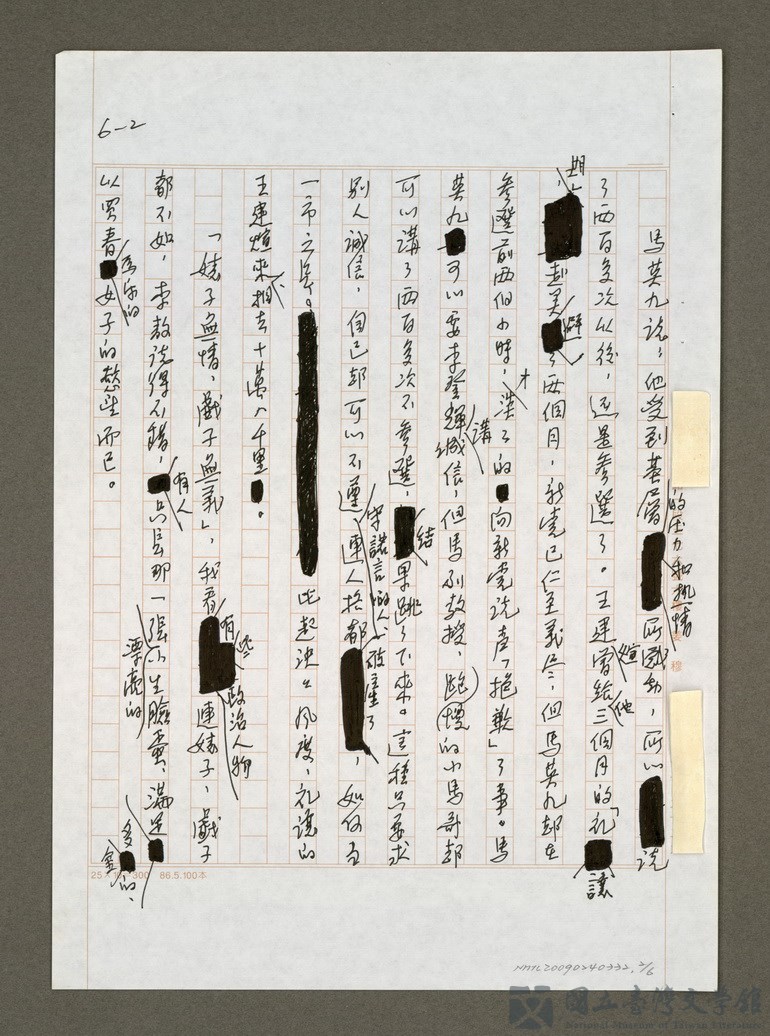 6-2
馬英九說，他受到基層的壓力和熱情所感動，所以說
了兩百多次以後，還是參選了。王建煊曾給他三個月的「禮讓
期」，赴美避了兩個月，新黨已仁至義盡，但馬英九卻在
參選前兩個小時，才淡淡的向新黨說聲「抱歉」了事。馬
英九可以要李登輝講誠信，但馬副教授，靦腆的小馬哥卻
可以講了兩百多次不參選，結果跳了下來。這種只要求
別人誠信，自己卻可以不遵守諾言的人，連人格都破產了，如何當
一市之長。比起決策風度，禮讓的
王建煊來相去十萬八千里。
「婊子無情，戲子無義」，我看有些政治人物連婊子，戲子
都不如，李敖說得不錯，有人只長那一張漂亮的小生臉蛋，滿足多金的、
以買春為樂的女子的慾望而已。
25×12=300 86.5.100本
NMTL20090240332, 2/6
國立臺灣文學館
National Museum of Taiwan Literature